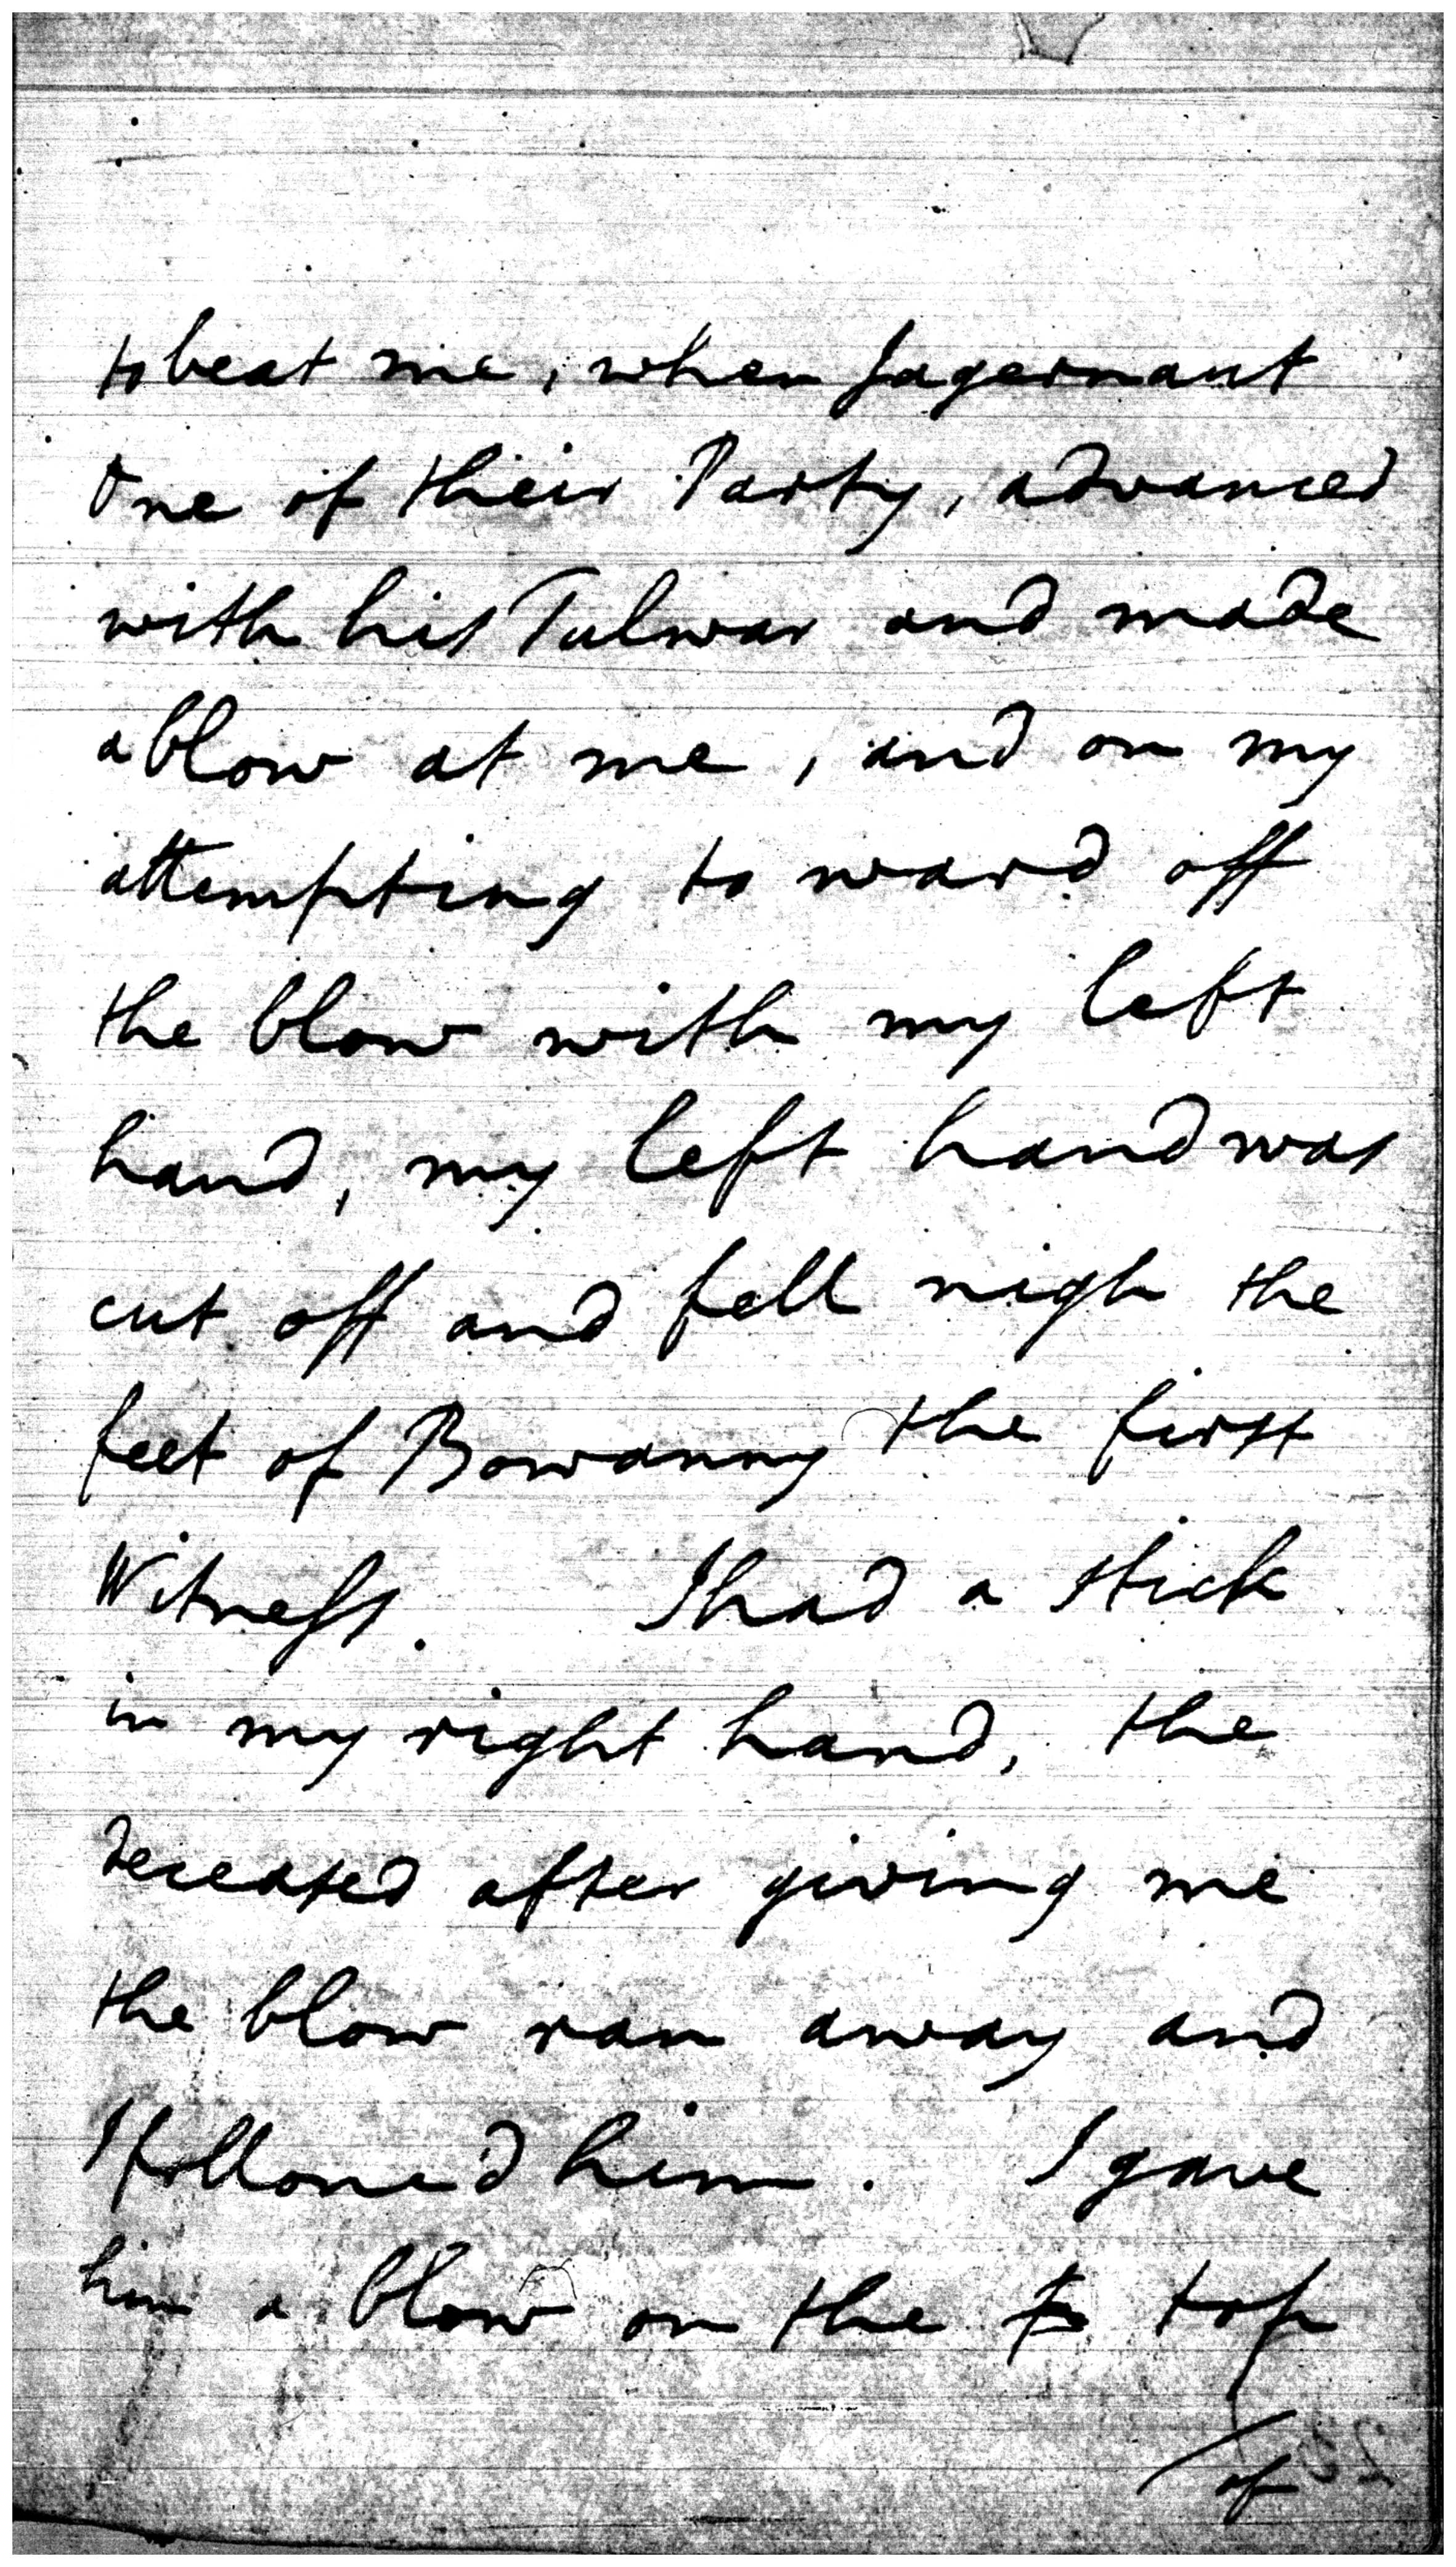 to beat me, when Jagernaut
One of their Party, advanced
with his Tulwar and made
a blow at me, and on my
attempting to ward off
the blow with my left
hand, my left hand was
cut off and fell nigh the
feet of Bowanny the first
Witness. I had a stick
in my right hand, the
deceased after giving me
the blow ran away and
I follow'd him. I gave
him a blow on the to top
of